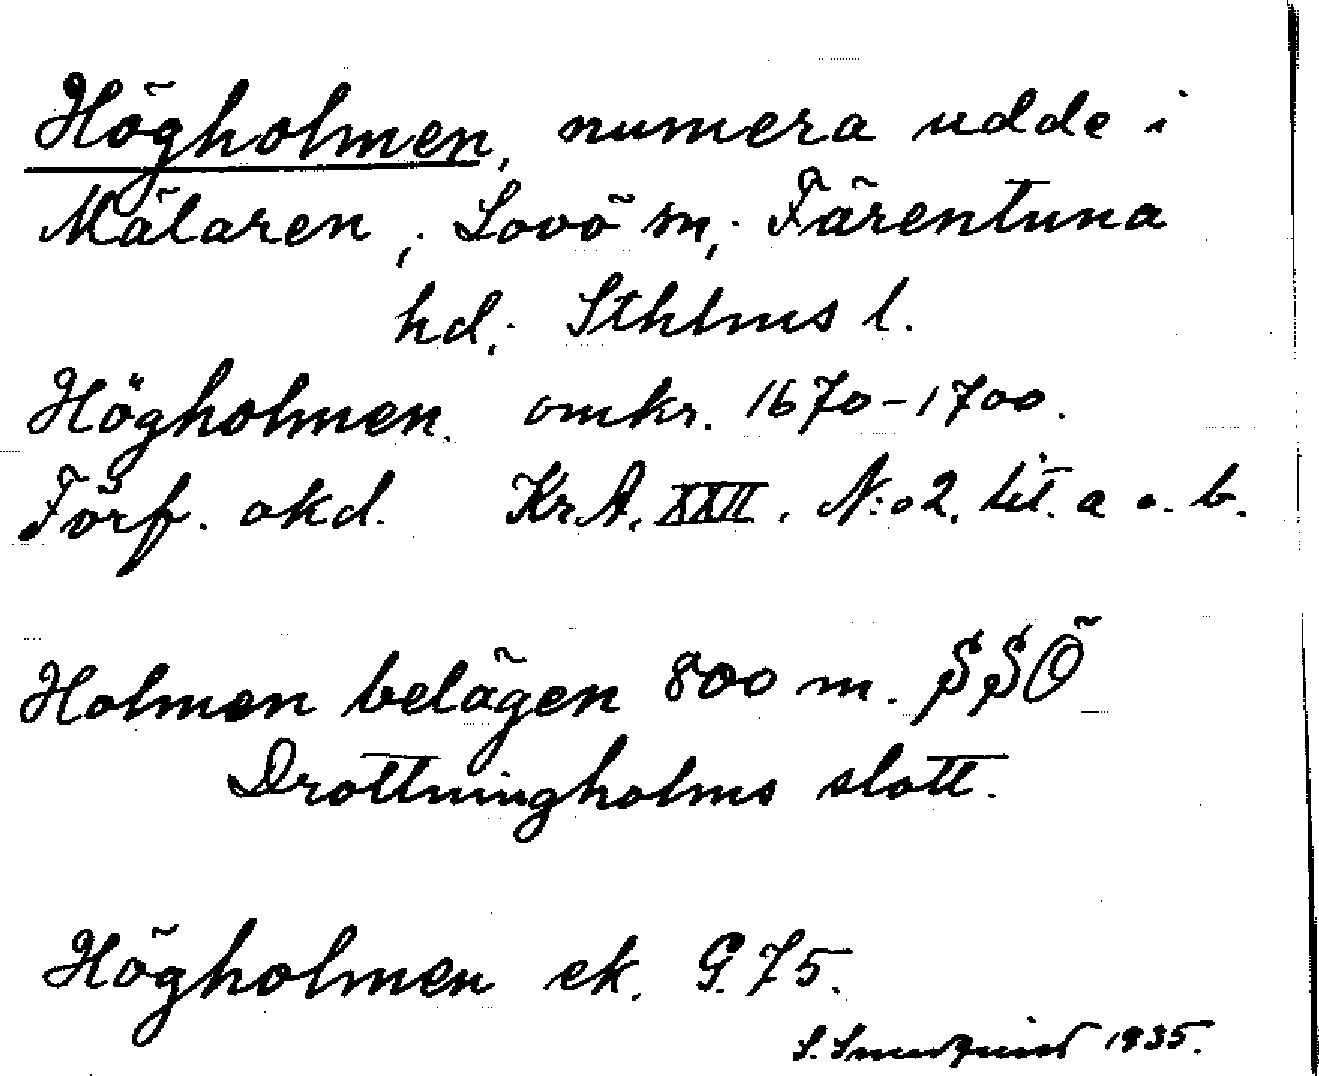 Högholmen, numera udde i
Mälaren, Lovö sn, Färentuna
hd. Sthlms l.
Högholmen. omkr. 1670-1700.
Förf. okd. KrA. XXII. N:o 2. lit. a o. b.
Holmen belägen 800 m. SSÖ
Drottningholms slott.
Högholmen ek. G. 75.
S. 1935.